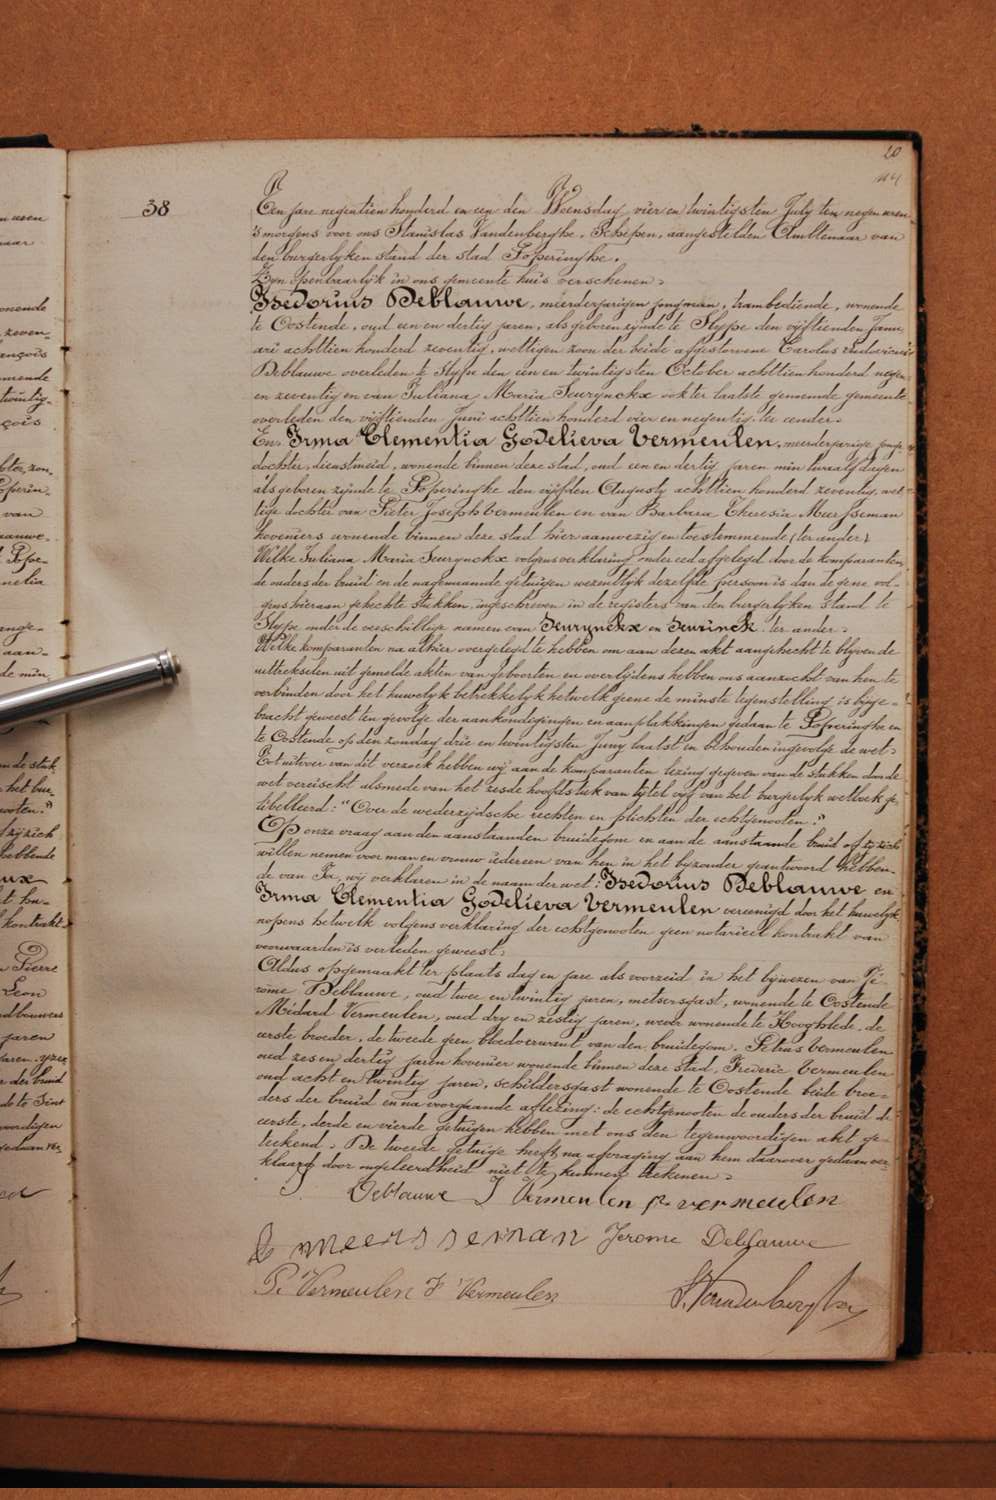 20
114
38
Ten jare negentien honderd en een den Woensdag vier en twintigsten July ten negen uren
's morgens voor ons Stanislas Vandenberghe, Schepen, aangestelden Ambtenaar van
den burgerlyken stand der stad Poperinghe.
Zyn openbaarlyk in ons gemeente huis verschenen:
Isedorius Deblauwe, meerderjarigen jongman, trambediende, wonende
te Oostende, oud een en dertig jaren, als geboren zijnde te Slype den vijftienden Janu
ari achttien honderd zeventig, wettigen zoon der beide afgestorvene Carolus Ludovicus
Deblauwe overleden te Slype den een en twintigsten October achttien honderd negen
en zeventig en van Juliana Maria Seurynckx ook ter laatste genoemde gemeente
overleden den vijftienden Juni achttien honderd vier en negentig, ter eender.
En Irma Clementia Godelieva Vermeulen, meerderjarige jonge
dochter, dienstmeid, wonende binnen deze stad, oud een en dertig jaren min twaalf dagen
als geboren zijnde te Poperinghe den vijfden Augusty achttien honderd zeventig, wet
tige dochter van Pieter Joseph Vermeulen en van Barbara Theresia Meersseman
hoveniers wonende binnen deze stad hier aanwezig en toestemmende (ter ander)
Wilke Juliana Maria Seurynckx volgens verklaring onder eed afgelegd door de komparanten
de ouders der bruid en de nagenaamde getuigen wezentlyk dezelfde persoon is dan degene vol
gens hieraan gehechte stukken, ingeschreven in de registers van den burgerlyken stand te
Slype onder de verschillige namen van Seurynckx en Seurinck. ter ander.
Welke komparanten na alhier overgelegd te hebben om aan dezen akt aangehecht te blyven de
uittrekselen uit gemelde akten van geboorten en overlijdens hebben ons aanzocht van hen te
verbinden door het huwelyk betrekkelyk hetwelk geene de minste tegenstelling is byge-
bracht geweest ten gevolge der aankondigingen en aanplakkingen gedaan te Poperinghe en
te Oostende op den zondag drie en twintigsten Juny laatst en behouden ingevolge de wet.
Tot uitvoer van dit verzoek hebben wy aan de komparanten lezing gegeven van de stukken door de
wet vereischt alsmede van het zesde hoofdstuk van tytel vyf van het burgerlyk wetboek ge
tibelleerd: "Over de wederzydsche rechten en plichten der echtgenooten."
Op onze vraag aan den aanstaanden bruidegom en aan de aanstaande bruid of zy zich
willen nemen voor man en vrouw iedereen van hen in het byzonder geantwoord hebben-
de van Ja, wy verklaren in de naam der wet: Isedorius Deblauwe en
Irma Clementia Godelieva Vermeulen vereenigd door het huwelyk
nopens hetwelk volgens verklaring der echtgenooten geen notarieel kontrakt van
voorwaarden is verleden geweest.
Aldus opgemaakt ter plaats dag en jare als voorzeid in het bywezen van Jé
rome Deblauwe, oud twee en twintig jaren, metsersgast, wonende te Oostende
Médard Vermeulen, oud dry en zestig jaren, wever wonende te Hooghlede, de
eerste broeder, de tweede geen bloedverwant van den bruidegom. Petrus Vermeulen
oud zes en dertig jaren hovenier wonende binnen deze stad, Frederic Vermeulen
oud acht en twintig jaren, schildersgast wonende te Oostende beide broe-
ders der bruid en na voorgaande aflezing: de echtgenooten de ouders der bruid de
eerste, derde en vierde getuigen hebben met ons den tegenwoordigen akt ge-
teekend. De tweede getuige heeft na afvraging aan hem daarover gedaan ver-
klaard door ongeleerdheid niet te kunnen teekenen.
Deblauwe I Vermeulen p vermeulen
B meersseman Jerome Deblauwe
P. Vermeulen F Vermeulen S. Vandenberghe